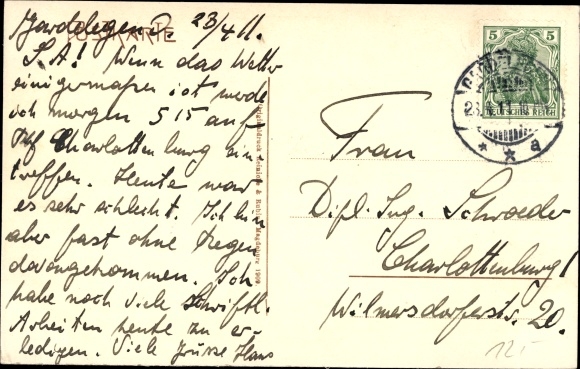 Gardelegen d. 23/4 11.
POSTKARTE
L. A! Wenn das Wetter
einigermaßen ist werde
ich morgen 5 15 auf
Bhf Charlottenburg ein
treffen. Heute war
es sehr schlecht. Ich bin
aber fast ohne Regen
davongekommen. Ich
habe noch viele schriftl.
Arbeiten heute zu er-
ledigen. Viele Grüsse Hans
Magdeburg 1909
5 5
DEUTSCHES REICH
* * a
Frau
Dipl. Ing. Schroeder
Charlottenburg 1
Wilmersdorferstr. 20.
12,-